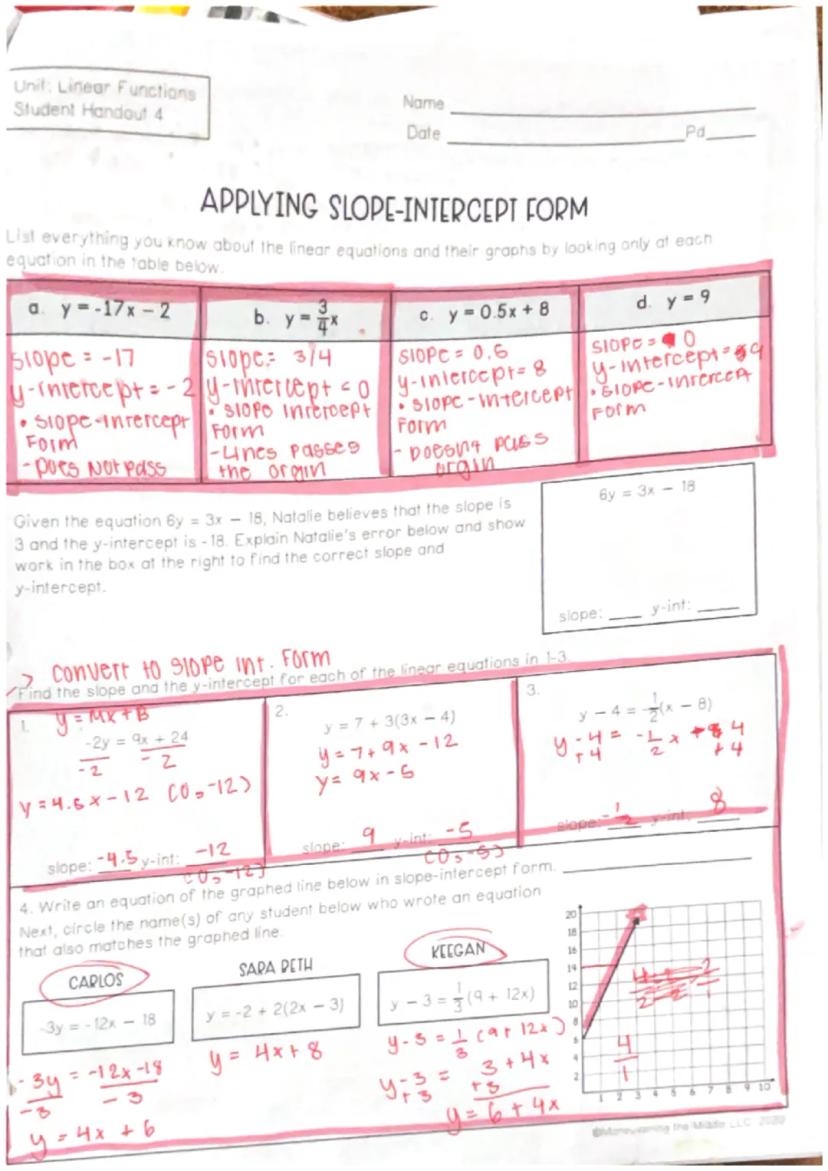 Unit: Linear Functions
Student Handout 4
Name
Date Pd
APPLYING SLOPE-INTERCEPT FORM
List everything you know about the linear equations and their graphs by looking only at each
equation in the table below.
a. y = -17x - 2
slope = -17
y-intercept = -2
• slope-intercept
Form
- Does Not pass
b. y = 3/4 x
slope = 3/4
y-intercept = 0
• slope intercept
Form
- Lines passes
the orgin
c. y = 0.5x + 8
slope = 0.5
y-intercept = 8
• slope-intercept
Form
- Doesnt pass
orgin
d. y = 9
slope = 0
y-intercept = 9
• slope-intercept
Form
Given the equation 6y = 3x - 18, Natalie believes that the slope is
3 and the y-intercept is -18. Explain Natalie's error below and show
work in the box at the right to find the correct slope and
y-intercept.
6y = 3x - 18
slope: y-int:
> Convert to slope int. Form
Find the slope and the y-intercept for each of the linear equations in 1-3.
1. y = Mx + B
-2y = 9x + 24
-2 -2
y = 4.5x - 12 (0, -12)
slope: -4.5 y-int: -12
(0, -12)
2.
y = 7 + 3(3x - 4)
y = 7 + 9x - 12
y = 9x - 5
slope: 9 y-int: -5
(0, -5)
3.
y - 4 = -1/2(x - 8)
y - 4 = -1/2 x + 4
+4 +4
slope: -1/2 y-int: 8
4. Write an equation of the graphed line below in slope-intercept form.
Next, circle the name(s) of any student below who wrote an equation
that also matches the graphed line.
CARLOS
-3y = -12x - 18
-3y = -12x - 18
-3 -3
y = 4x + 6
SARA BETH
y = -2 + 2(2x - 3)
y = 4x + 8
KEEGAN
y - 3 = 1/3(9 + 12x)
y - 3 = 1/3 (9 + 12x)
y - 3 = 3 + 4x
+3 +3
y = 6 + 4x
20
18
16
14
12
10
8
6
4
2
4/1
1 2 3 4 5 6 7 8 9 10
©Maneuvering the Middle LLC, 2020